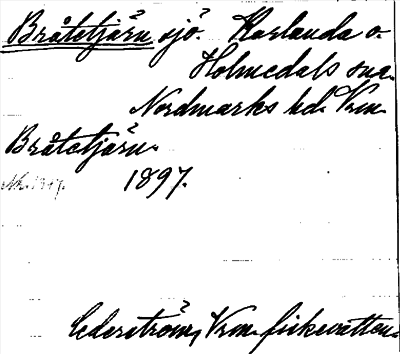 Bråtetjärn sjö. Karlanda o.
Holmedals sna.
Nordmarks hd. Vrm.
Bråtetjärn.
1897.
Cederström, Vrm. fiskevatten.